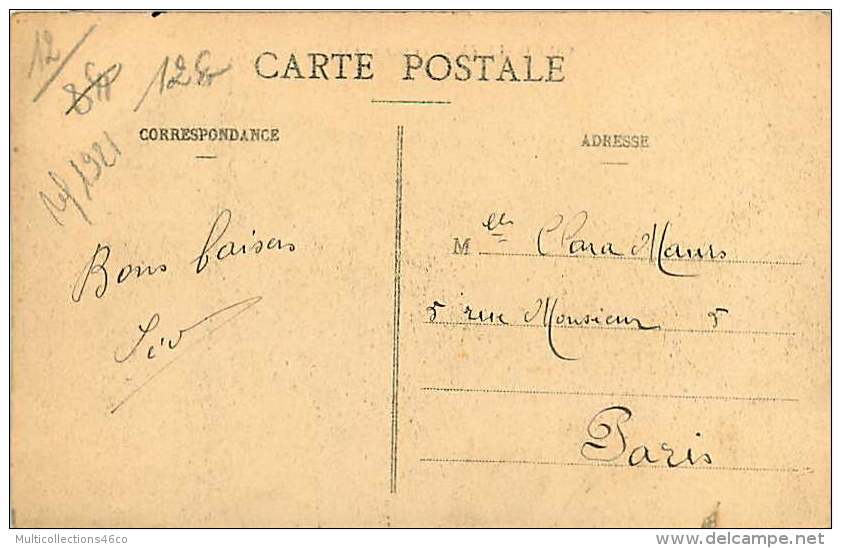 12
12 €
CARTE POSTALE
CORRESPONDANCE
ADRESSE
Bons baisers
M elle Clara Maurs
5 rue Monsieur 5
Paris
Multicollections46co
www.delcampe.net